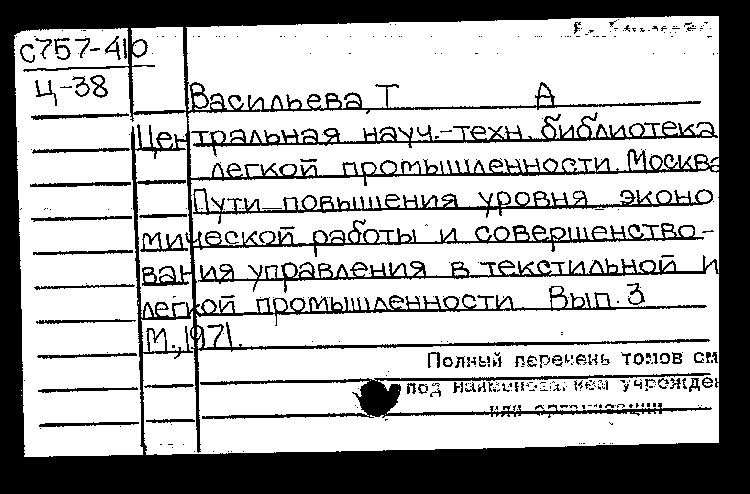 С757-410
Ц-38
Васильева, Т А
Центральная науч.-техн. библиотека
легкой промышленности. Москва
Пути повышения уровня эконо
мической работы и совершенство-
вания управления в текстильной и
легкой промышленности Вып. 3
М., 1971.
Полный перечень томов см
под наименованием учрежден
или организации